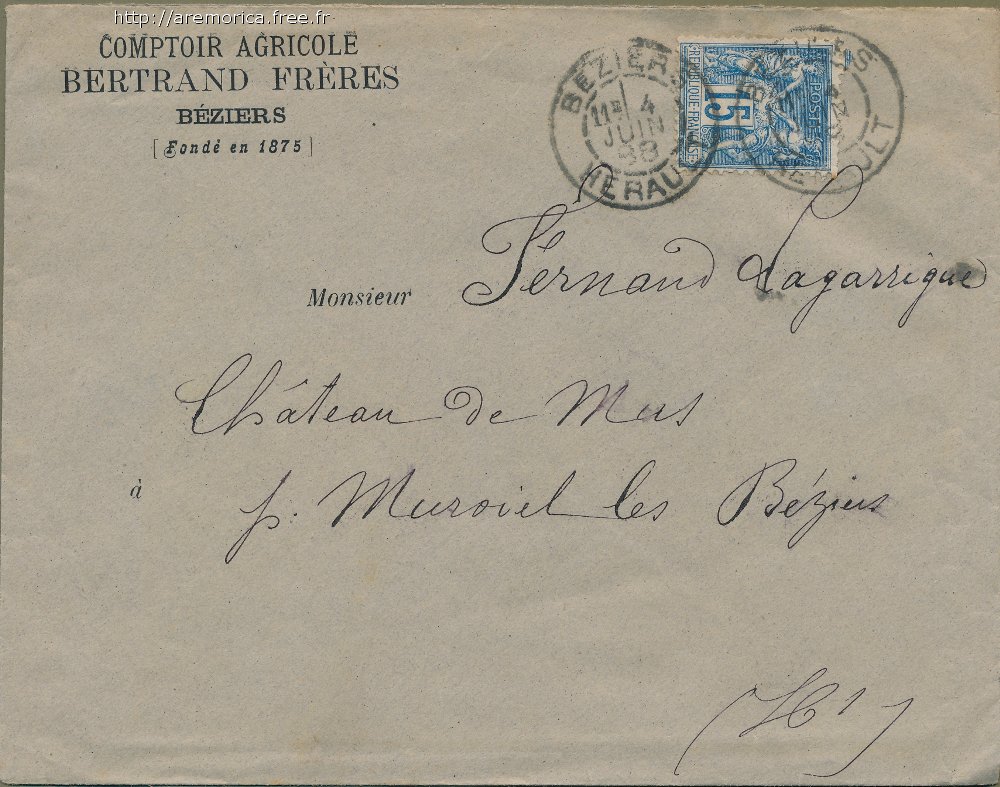 http://aremorica.free.fr
COMPTOIR AGRICOLE
BERTRAND FRÈRES
BÉZIERS
[Fondé en 1875]
BÉZIERS
4
JUIN
88
HERAULT
15
REPUBLIQUE FRANÇAISE
POSTE
HERAULT
Monsieur Fernand Lagarrigue
Château de Mus
à p. Murviel les Béziers
(Hᵗ)